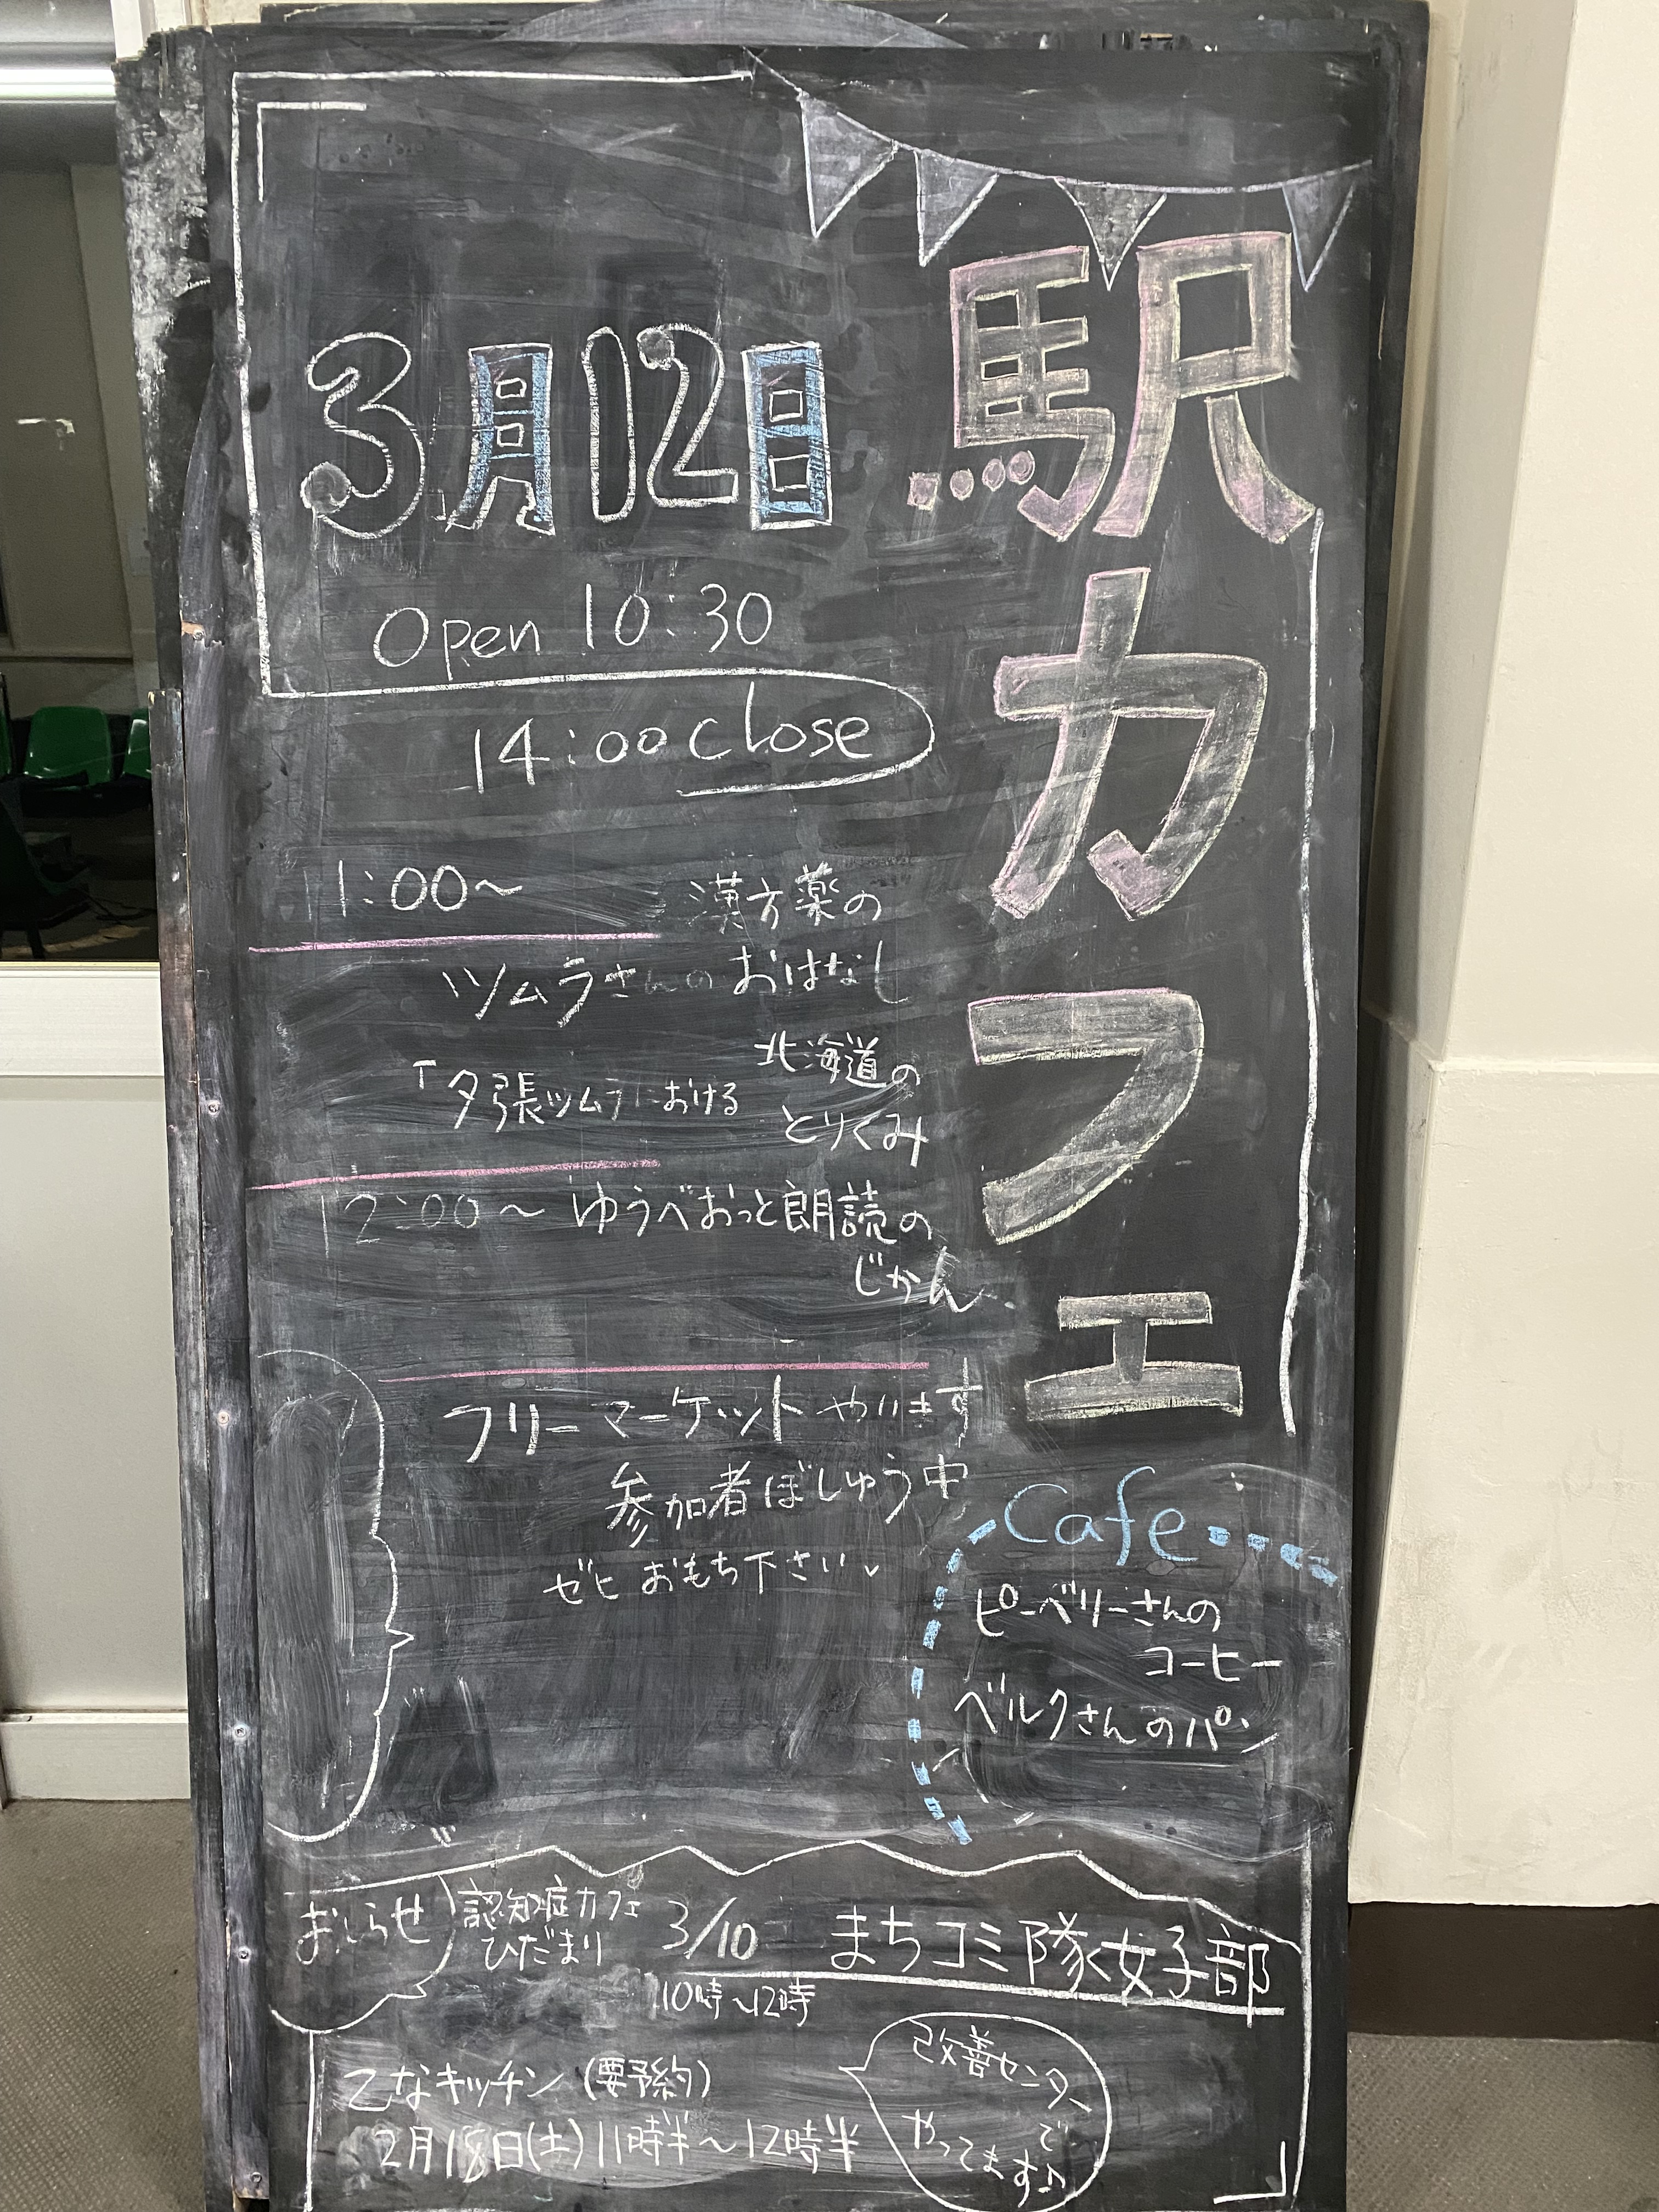 駅カフェ
3月12日
Open 10:30
14:00 close
11:00～
漢方薬の
ツムラさんの おはなし
「夕張ツムラにおける
北海道の
とりくみ
12:00～ ゆうべおっと朗読の
じかん
フリーマーケットやります
参加者ぼしゅう中
ゼヒ おもち下さい
Cafe
ピーベリーさんの
コーヒー
ベルクさんのパン
おしらせ
認知症カフェ
ひだまり
3/10
10時～12時
まちコミ隊女子部
乙なキッチン (要予約)
2月18日(土) 11時半～12時半
改善センター
で
やってます♪